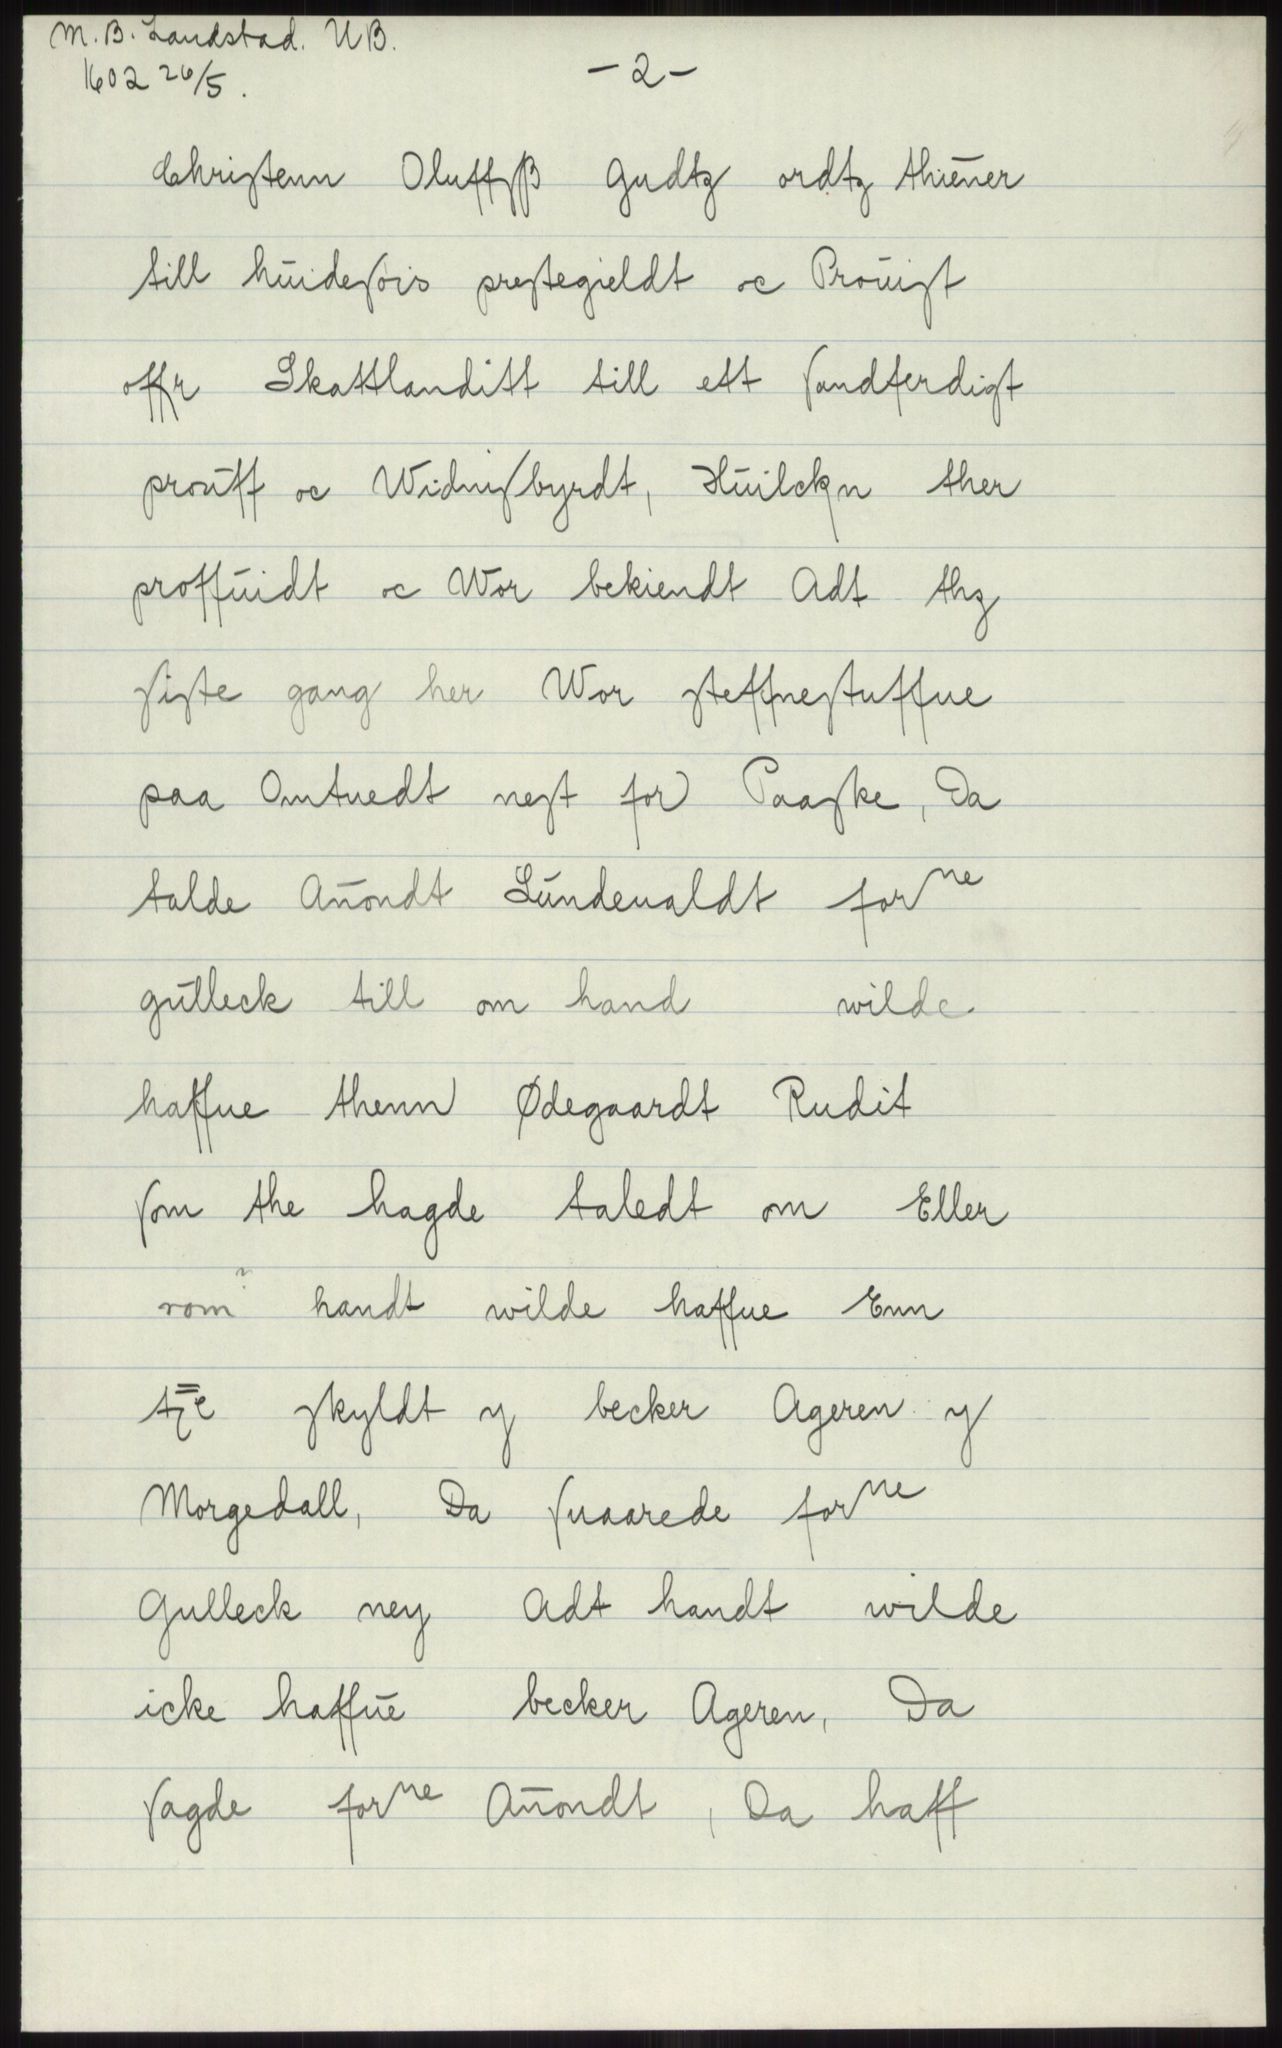 M. B. Landstad. UB.
1602 26/5.
- 2 -
Christenn Oluffsß gudtz ordtz thiener
till huidesøis prestegieldt oc Prouist
offr Skattlanditt till ett sandferdigt
prouff oc Widnisbyrdt, Huilckn ther
proffuidt oc Wor bekiendt Adt thz
siste gang her Wor steffnestuffue
paa Omtuedt nest for Paaske, Da
talde Auondt Lundeualdt forne
gulleck till om hand wilde
haffue thenn Ødegaardt Rudit
som the hagde taledt om Eller
om handt wilde haffue Enn
skyldt y becker Ageren y
Morgedall, Da suaarede forne
Gulleck ney Adt handt wilde
icke haffue becker Ageren, Da
sagde forne Auondt, Da haff